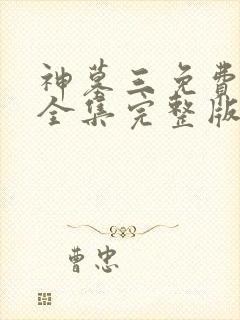 神墓三免费
全集完整版
曹忠